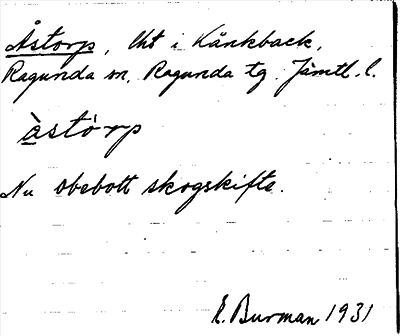 Åstorp, lht i Kånkback,
Ragunda sn, Ragunda tg. Jämtl. l.
àstò́rp
Nu obebott skogskifte.
E. Burman 1931